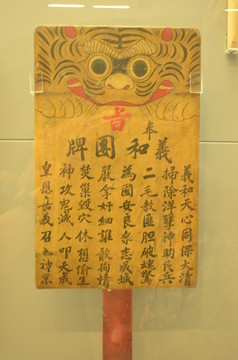 奉
旨
義和團牌
義和天心同保大清
掃除洋孽神助民兵
二毛教匪胆破魂驚
為國安良眾志成城
嚴拿奸細誰敢徇情
焚巢毀穴休想偷生
神攻鬼滅人叩天成
皇恩嘉義召神京